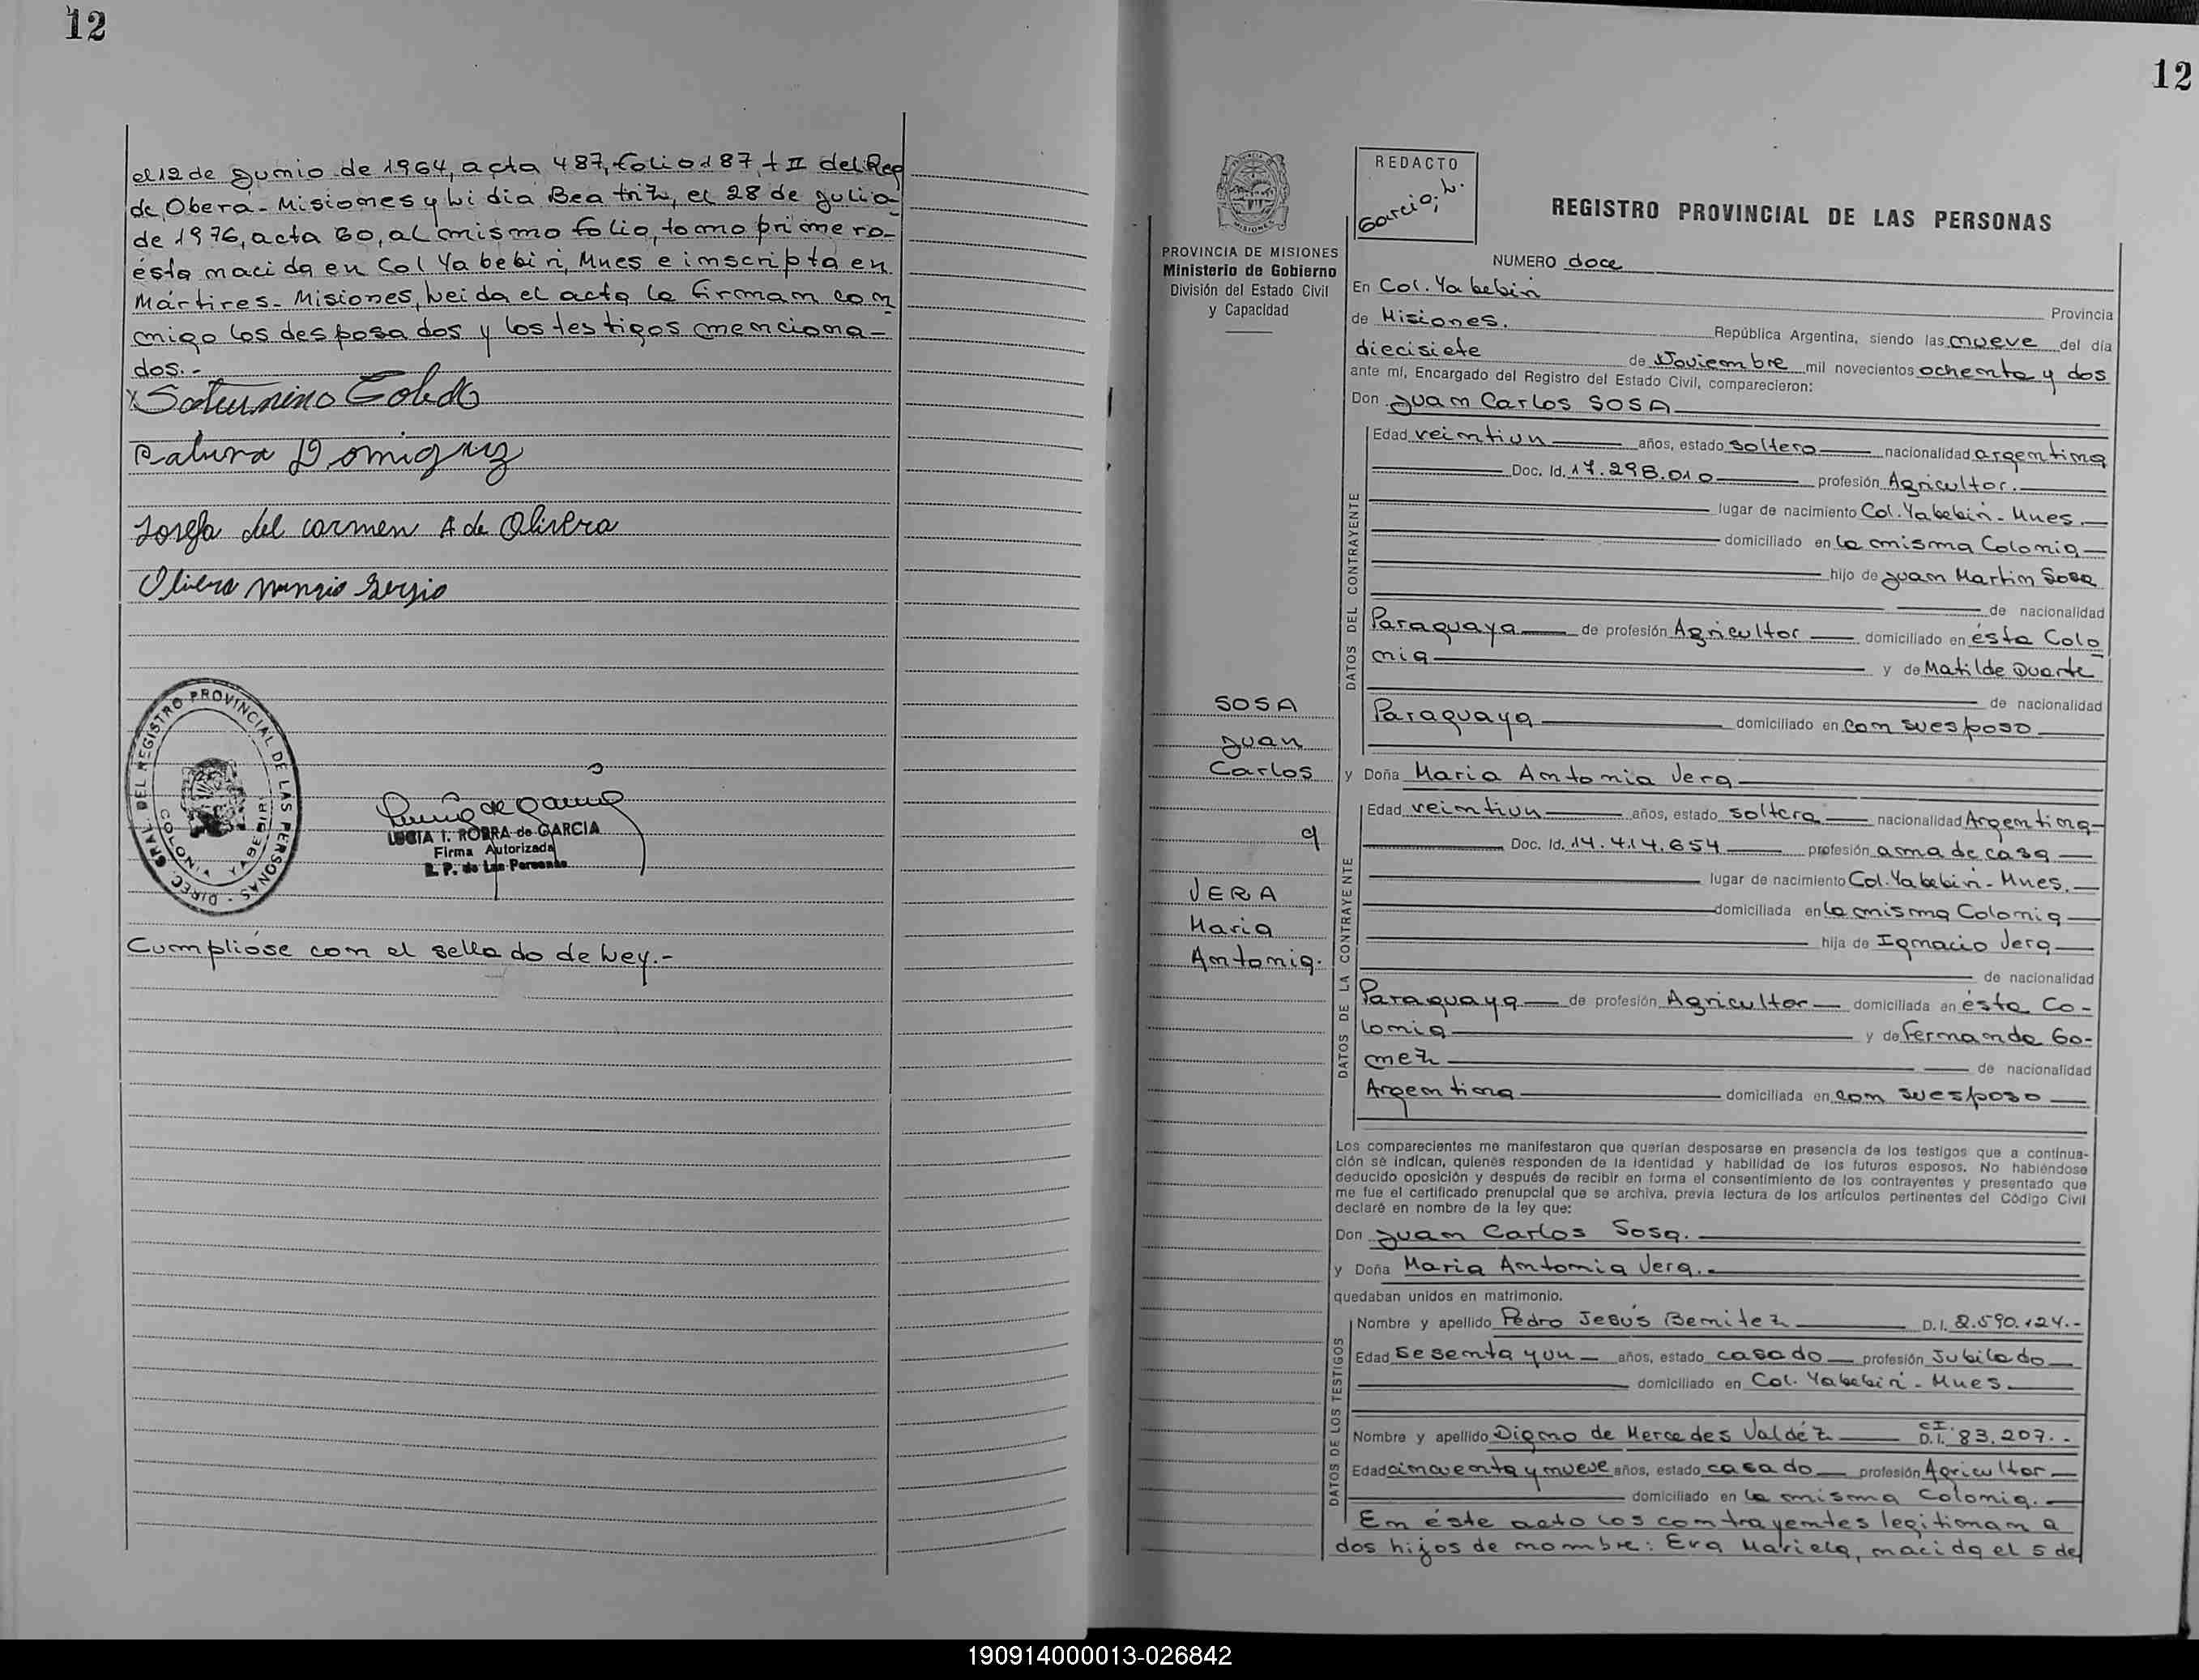 12
el 12 de Junio de 1964, acta 487, folio 187, t II del Reg
de Oberá - Misiones y Lidia Beatriz, el 28 de Julio
de 1976, acta 60, al mismo folio, tomo primero-
ésta nacida en Col Yabebiri, Mnes e inscripta en
Mártires - Misiones, Leida el acta la firman con
migo los desposados y los testigos menciona-
dos.-
X Saturnino Toledo
Josefa del carmen A de Olivera
DIREC. GRAL. DEL REGISTRO PROVINCIAL DE LAS PERSONAS
COLONIA YABEBIRI
LUCIA I. ROBRA de GARCIA
Firma Autorizada
R. P. de Las Personas
Cumplióse con el sellado de Ley.-
12
PROVINCIA DE MISIONES
Ministerio de Gobierno
División del Estado Civil
y Capacidad
REDACTO
Garcia; L.
REGISTRO PROVINCIAL DE LAS PERSONAS
NUMERO doce
En Col. Yabebiri
Provincia
de Misiones. República Argentina, siendo las nueve del día
diecisiete de Noviembre mil novecientos ochenta y dos
ante mí, Encargado del Registro del Estado Civil, comparecieron:
Don Juan Carlos SOSA
DATOS DEL CONTRAYENTE
Edad veintiun años, estado soltero nacionalidad argentina
Doc. Id. 17.298.010 profesión Agricultor.
lugar de nacimiento Col. Yabebiri - Mnes.
domiciliado en la misma Colonia
hijo de Juan Martin Sosa
de nacionalidad
Paraguaya de profesión Agricultor domiciliado en ésta Colo
nia y de Matilde Duarte
de nacionalidad
Paraguaya domiciliado en con su esposo
SOSA
Juan
Carlos
y
VERA
Maria
Antonia.
y Doña Maria Antonia Vera
DATOS DE LA CONTRAYENTE
Edad veintiun años, estado soltera nacionalidad Argentina
Doc. Id. 14.414.654 profesión ama de casa
lugar de nacimiento Col. Yabebiri - Mnes.
domiciliada en la misma Colonia
hija de Ignacio Vera
de nacionalidad
Paraguaya de profesión Agricultor domiciliada en ésta Co-
lonia y de Fernanda Go-
mez de nacionalidad
Argentina domiciliada en con su esposo
Los comparecientes me manifestaron que querían desposarse en presencia de los testigos que a continua-
ción se indican, quienes responden de la identidad y habilidad de los futuros esposos. No habiéndose
deducido oposición y después de recibir en forma el consentimiento de los contrayentes y presentado que
me fue el certificado prenupcial que se archiva, previa lectura de los artículos pertinentes del Código Civil
declaré en nombre de la ley que:
Don Juan Carlos Sosa.
y Doña Maria Antonia Vera.-
quedaban unidos en matrimonio.
DATOS DE LOS TESTIGOS
Nombre y apellido Pedro Jesús Benitez D.I. 2.590.124.-
Edad sesenta y un años, estado casado profesión Jubilado
domiciliado en Col. Yabebiri - Mnes.
Nombre y apellido Digno de Mercedes Valdéz C.I. D.I. 83.207.-
Edad cincuenta y nueve años, estado casado profesión Agricultor
domiciliado en la misma Colonia.
En éste acto los contrayentes legitiman a
dos hijos de nombre: Eva Mariela, nacida el 5 de
190914000013-026842